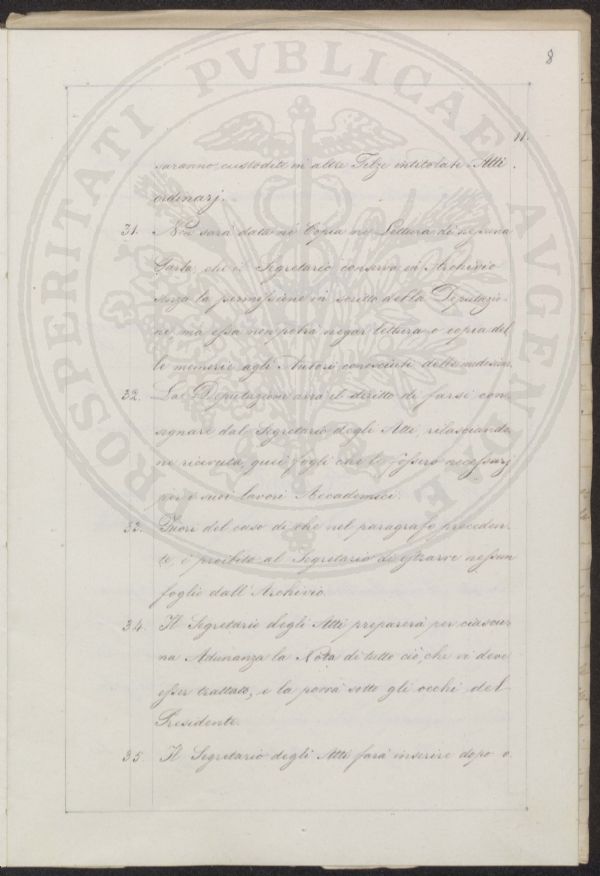 8
11.
saranno custodite in altre Filze intitolate: Atti
ordinarj.
31. Non sarà data nè Copia nè Lettura di nessuna
Carta, che il Segretario conserva in Archivio
senza la permissione in scritto della Deputazio-
ne, ma essa non potrà negar lettura, o copia del-
le memorie agli Autori conosciuti delle medesime.
32. La Deputazione avrà il diritto di farsi con-
segnare dal Segretario degli Atti, rilasciando-
ne ricevuta, quei fogli che le fossero necessarj
per i suoi lavori Accademici.
33. Fuori del caso di che nel paragrafo preceden-
te, è proibito al Segretario di estrarre nessun
foglio dall'Archivio.
34. Il Segretario degli Atti preparerà per ciascu-
na Adunanza la Nota di tutto ciò, che vi deve
esser trattato, e la porrà sotto gli occhi del
Presidente.
35. Il Segretario degli Atti farà inserire dopo o
PROSPERITATI PVBLICAE AVGENDAE